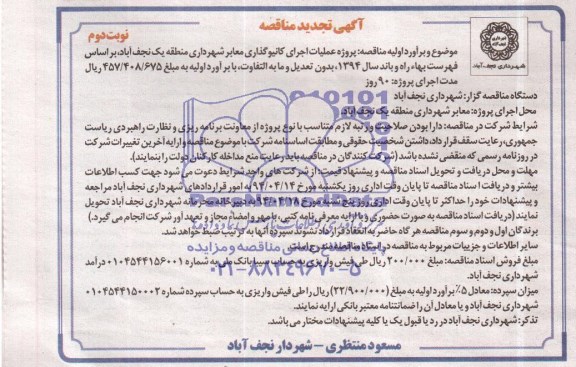 آگهی تجدید مناقصه
نوبت دوم
شهرداری نجف آباد
موضوع و برآورد اولیه مناقصه: پروژه عملیات اجرای کانیو گذاری معابر شهرداری منطقه یک نجف آباد، بر اساس
فهرست بهاء راه و باند سال ۱۳۹۴، بدون تعدیل و ما به التفاوت، با برآورد اولیه به مبلغ ۴۵۷/۴۰۸/۶۷۵ ریال
مدت اجرای پروژه: ۹۰ روز
دستگاه مناقصه گزار: شهرداری نجف آباد
محل اجرای پروژه: معابر شهرداری منطقه یک نجف آباد
شرایط شرکت در مناقصه: دارا بودن صلاحیت و رتبه لازم متناسب با نوع پروژه از معاونت برنامه ریزی و نظارت راهبردی ریاست
جمهوری، رعایت سقف قرارداد، داشتن شخصیت حقوقی و مطابقت اساسنامه شرکت با موضوع مناقصه و ارایه آخرین تغییرات شرکت
در روزنامه رسمی که منقضی نشده باشد (شرکت کنندگان در مناقصه باید رعایت منع مداخله کارکنان دولت را بنمایند).
مهلت و محل دریافت و تحویل اسناد مناقصه و پیشنهاد قیمت: از شرکت های واجد شرایط دعوت می شود جهت کسب اطلاعات
بیشتر و دریافت اسناد مناقصه تا پایان وقت اداری روز یکشنبه مورخ ۹۴/۰۴/۱۴ به امور قراردادهای شهرداری نجف آباد مراجعه
و پیشنهادات خود را حداکثر تا پایان وقت اداری روز پنج شنبه مورخ ۹۴/۰۴/۱۸ به دبیرخانه محرمانه شهرداری نجف آباد تحویل
نمایند (دریافت اسناد مناقصه به صورت حضوری و با ارایه معرفی نامه کتبی، با مهر و امضاء مجاز و تعهد آور شرکت انجام می گیرد.)
برندگان اول و دوم و سوم مناقصه هر گاه حاضر به انعقاد قرارداد نشوند سپرده آنها به ترتیب ضبط خواهد شد.
سایر اطلاعات و جزییات مربوط به مناقصه در اسناد مناقصه مندرج است.
مبلغ فروش اسناد مناقصه: مبلغ ۲۰۰/۰۰۰ ریال طی فیش واریزی به حساب سیبا بانک ملی به شماره ۰۱۰۴۵۴۴۱۵۶۰۰۱ درآمد
شهرداری نجف آباد.
میزان سپرده: معادل ۵٪ برآورد اولیه به مبلغ (۲۲/۹۰۰/۰۰۰) ریال را طی فیش واریزی به حساب سپرده شماره ۰۱۰۴۵۴۴۱۵۰۰۰۲
شهرداری نجف آباد و یا معادل آن را ضمانتنامه معتبر بانکی ارایه نمایند.
تذکر: شهرداری نجف آباد در رد یا قبول یک یا کلیه پیشنهادات مختار می باشد.
مسعود منتظری - شهردار نجف آباد
پایگاه اطلاع رسانی مناقصه و مزایده
۰۲۱-۸۸۳۴۹۶۷۰-۵